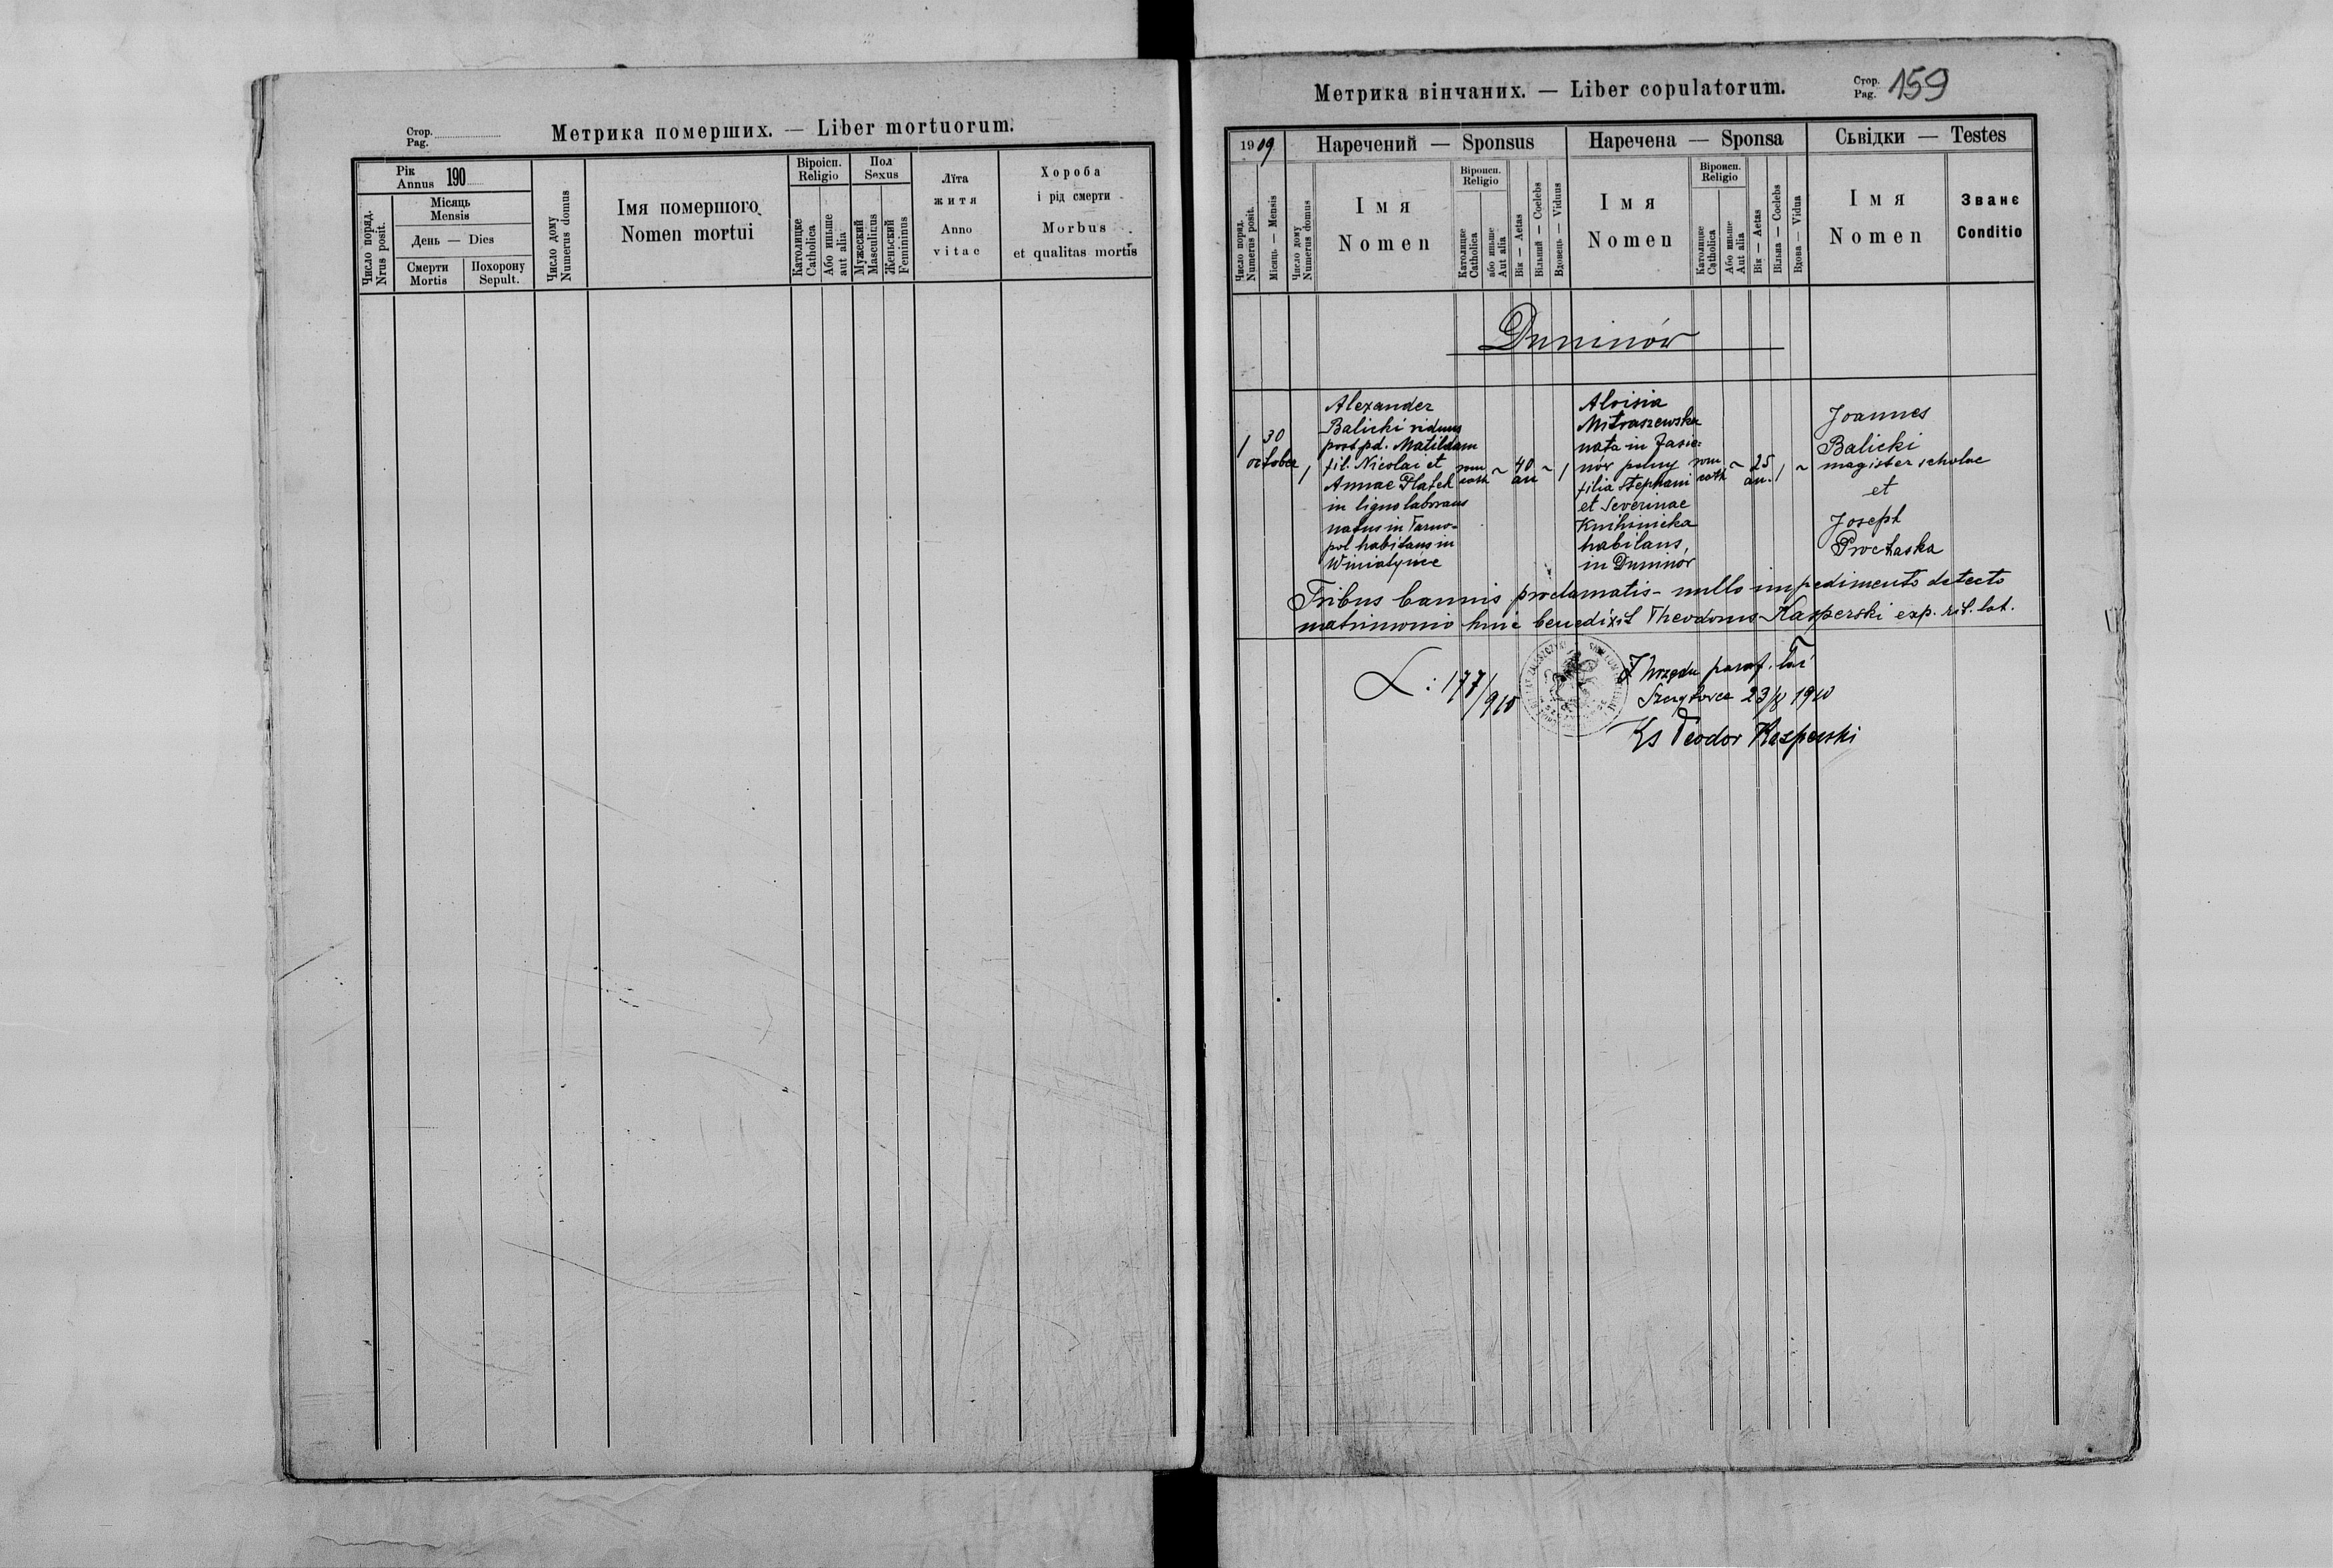 Стор.
Pag.
Метрика померших. — Liber mortuorum.
Рік
Annus 190
Місяць
Mensis
День — Dies
Число поряд.
Nrus posit.
Смерти
Mortis
Похорону
Sepult.
Число дому
Numerus domus
Імя помершого
Nomen mortui
Віроісп.
Religio
Католицке
Catholica
Або иньше
aut alia
Пол
Sexus
Мужеский
Masculinus
Женьский
Femininus
Лїта
житя
Anno
vitae
Хороба
і рід смерти
Morbus
et qualitas mortis
Метрика вінчаних. — Liber copulatorum.
Стор.
Pag. 159
1909
Наречений — Sponsus
Наречена — Sponsa
Сьвідки — Testes
Число поряд.
Numerus posit.
Місяць — Mensis
Число дому
Numerus domus
Імя
Nomen
Віроисп.
Religio
Католицке
Catholica
або иньше
Aut alia
Вік — Aetas
Вільний — Coelebs
Вдовець — Viduus
Імя
Nomen
Віроисп.
Religio
Католицке
Catholica
Або иньше
Aut alia
Вік — Aetas
Вільна — Coelebs
Вдова — Vidua
Імя
Nomen
Званє
Conditio
Duninów
1
30
october
1
Alexander
Balicki viduus
post pd. Matildam
fil. Nicolai et
Annae Flatek
in ligno laborans
natus in Tarno-
pol habitans in
Winiatyńce
rom
cath
~
40
an
~
1
Aloisia
Mitraszewska
nata in Jasie-
nów polny
filia Stephani
et Severinae
Knihinicka
habitans,
in Duninor
rom
cath
~
25
an.
1
~
Joannes
Balicki
magister scholae
et
Joseph
Prochaska
Tribus bannis proclamatis - nullo impedimento detecto
matrimonio huic benedixit Theodorus Kasperski exp. rit. lat.
L: 177/910
Z Urzędu paraf. łać
23/8 1910
Ks Teodor Kasperski